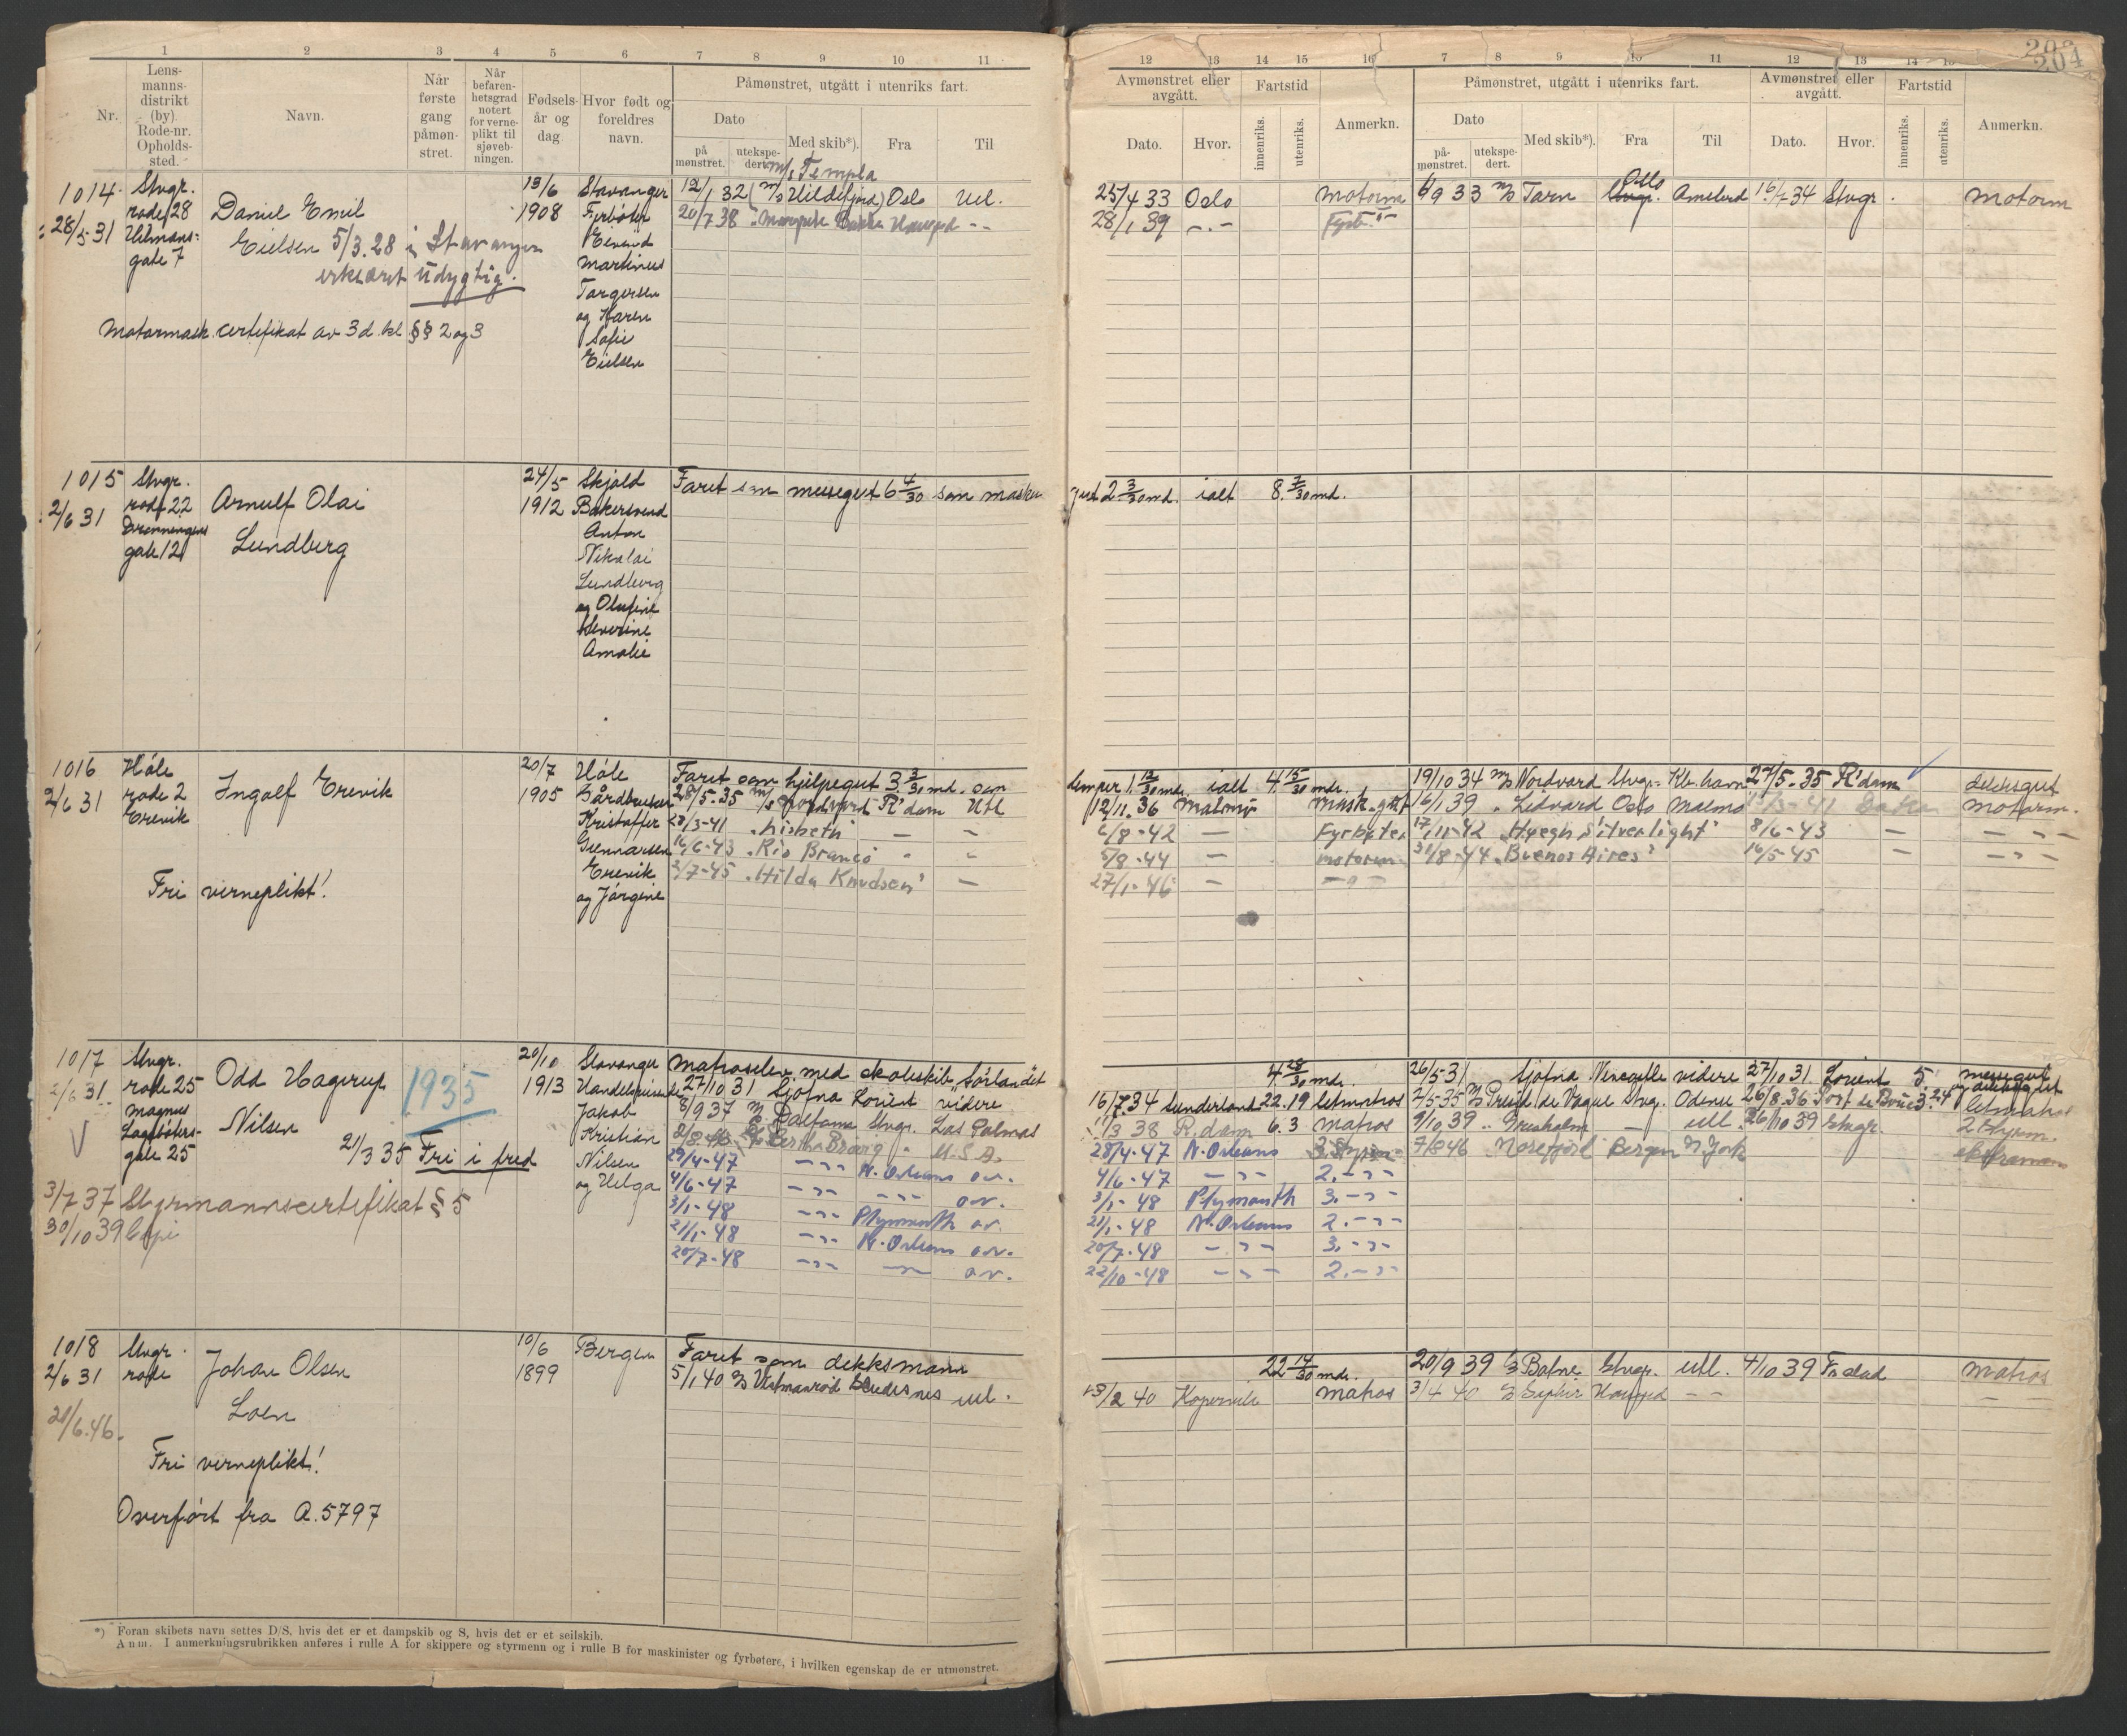 1 2 3 4 5 6 7 8 9 10 11
Nr.
Lens-
manns-
distrikt
(by).
Rode-nr.
Opholds-
sted.
Navn.
Når
første
gang
påmøn-
stret.
Når
befaren-
hetsgrad
notert
for verne-
plikt til
sjøveb-
ningen.
Fødsels-
år og
dag.
Hvor født og
foreldres
navn.
Påmønstret, utgått i utenriks fart.
Dato
på
mønstret.
utekspe-
dert.
Med skib*).
Fra
Til
1014
28/5 31
Stvgr.
rode 28
gate 7
Daniel Emil
Eielsen 5/3.28 i Stavanger
erklært udygtig.
Motormask. certifikat av 3d. kl. §§ 2 og 3
13/6
1908
Stavanger
Fyrbøter
Eivind
Martinus
Torgersen
og Karen
Sofie
Eielsen
M/s Templa
12/1 32 (M/s Hildefjord) Oslo Utl.
20/7 38
1015
2/6 31
Stvgr.
rode 22
Dronningens
gate 12
Arnulf Olai
Lundberg
24/5
1912
Skjold
Bakersvend
Anton
Nikolai
Lundberg
og Olufine
Severine
Amalie
Faret som messegut 6 4/30 som maskin
1016
2/6 31
Høle
rode 2
Erevik
Ingolf Erevik
Fri verneplikt!
20/7
1905
Høle
Gårdbruker
Kristoffer
Gunnarsen
Erevik
og Jørgine
Faret som hjelpegut 3 3/30 md. som
28/5-35 M/s Nordvard R'dam Utl
28/3-41 "Lisbeth" — —
16/6-43 "Rio Branco" - -
2/7-45 "Hilda Knudsen" —
1017
2/6 31
Stvgr.
rode 25
Magnus
Lagabøters-
gate 25
V
Odd Hagerup
Nilsen
1935
21/3 35 Fri i fred
3/7 37 Styrmannscertifikat § 5
30/10 39
20/10
1913
Stavanger
Jakob
Kristian
Nilsen
og Helga
Matroselev med skoleskib Sørlandet
27/10 31 Sjøfna Lorient videre
8/9 37 Stvgr. Las Palmas
Bertha Brøvig - U.S.A.
29/4-47 -"- N. Orleans ov.
4/6-47 -"- -"- ov.
3/1-48 -"- Plymouth ov.
21/1-48 -"- N. Orleans ov.
20/7-48 -"- -"- ov.
1018
2/6 31
21/6.46.
Stvgr.
rode
Johan Olsen
Loen
Fri verneplikt!
Overført fra A. 5797
10/6
1899
Bergen
Faret som dekksmann
5/1 40 Skudesnes utl.
*) Foran skibets navn settes D/S, hvis det er et dampskib og S, hvis det er et seilskib.
Anm. I anmerkningsrubrikken anføres i rulle A for skippere og styrmenn og i rulle B for maskinister og fyrbøtere, i hvilken egenskap de er utmønstret.
204
12 13 14 15 16 7 8 9 10 11 12 13 14 15
Avmønstret eller
avgått.
Dato.
Hvor.
Fartstid
innenriks.
utenriks.
Anmerkn.
Påmønstret, utgått i utenriks fart.
Dato
på-
mønstret.
utekspe-
dert.
Med skib*).
Fra
Til
Avmønstret eller
avgått.
Dato.
Hvor.
Fartstid
innenriks.
utenriks.
Anmerkn.
Oslo
25/4 33 Oslo Motorm 6/9 33 M/s Tarn Stvgr. 34 Stvgr. Motorm
28/1 39 -.- Fyrb.
gut 2 3/30 md. ialt 8 7/30 md.
lemper 1 12/30 md. ialt 4 15/30 mdr. 19/10 34 M/s Nordvard Stvgr. Kb.havn 27/5-35 R'dam dekksgut
12/11.36 Malmø Mask.gut 16/1 39 Oslo Malmø Motorm.
6/8-42 — Fyrbøter 17/11-42 "Høegh Silverlight" 8/6-43 — -"-
5/8-44 — motorm. 31/8-44 "Buenos Aires" 16/5-45 — -"-
27/1-46 — -"-
4 28/30 mdr. 26/5 31 Sjøfna videre 27/10 31 Lorient 5. messegut
16/7 34 Sunderland 22.19 letmatros 2/5-35 Stvgr. Odense 26/8.36 Port de Bouc letmatros
38 R.dam 6.3 matros 9/10 39 — utl. 26/10 39 Stvgr. 2 styrm.
28/4-47 N. Orleans 7/8 46 Norefjord Bergen N. York
4/6-47 -"- 2.-"-
3/1-48 Plymouth 3.-"-
21/1-48 N. Orleans 2.-"-
20/7-48 -"- 3.-"-
22/10-48 -"- 2.-"-
22 14/30 mdr. 20/9 39 Stvgr. utl. 4/10 39 Fr.stad Matros
13/2 40 Kopervik Matros 3/4 40 — —